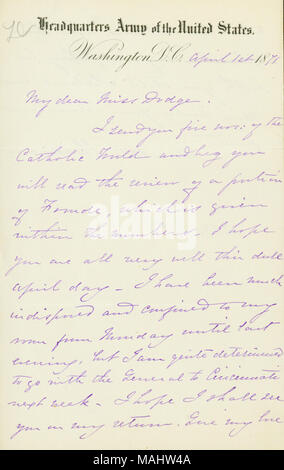 Headquarters Army of the United States.
Washington, D.C. April 1st 1871
My dear Miss Dodge.
I send you five nos: of the
Catholic World and beg you
will read the review of a portion
of Froude, which is given
within the numbers. I hope
you are all very well this dull
April day – I have been much
indisposed and confined to my
room from Monday until last
evening, but I am quite determined
to go with the General to Cincinnati
next week – I hope I shall see
you on my return. Give my love
alamy stock photo
MAHW4A